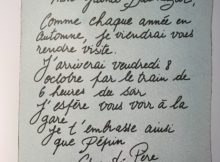 Comme chaque année en
automne, je viendrai vous
rendre visite.
J'arriverai vendredi 8
octobre par le train de
6 heures de soir
j'espère vous voir à la
gare
je t'embrasse ainsi
que Pépin
Père